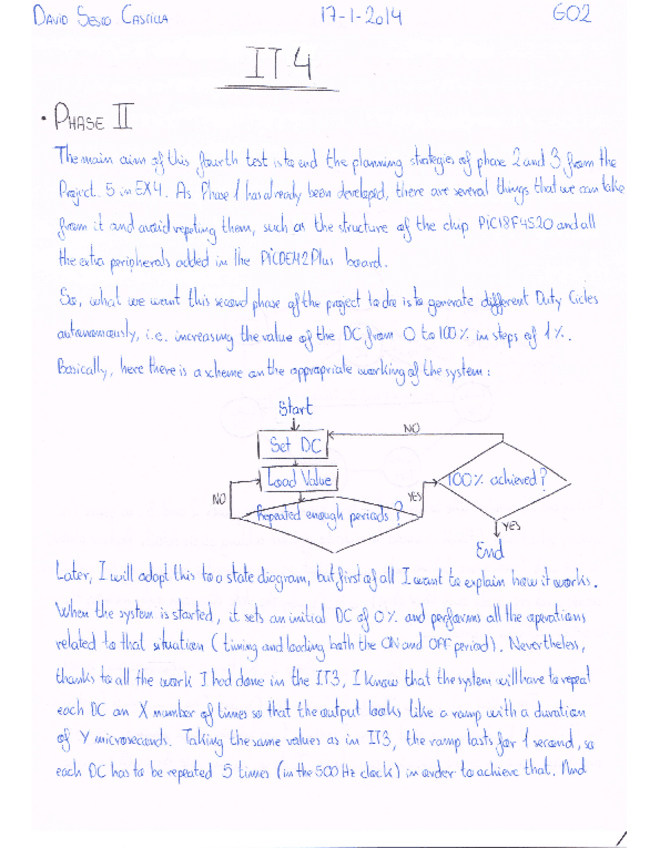 DAVID SESTO CASTILLA 17-1-2014 GO2
IT4
· PHASE II
The main aim of this fourth test is to end the planning strategies of phase 2 and 3 from the
Project. 5 in EX4. As Phase 1 has already been developed, there are several things that we can take
from it and avoid repeting them, such as the structure of the chip PIC18F4520 and all
the extra peripherals added in the PICDEM2Plus board.
So, what we want this second phase of the project to do is to generate different Duty Cicles
autonomously, i.e. increasing the value of the DC from 0 to 100% in steps of 1%.
Basically, here there is a scheme on the appropriate working of the system:
Start
NO
Set DC
Load Value
100% achieved?
NO
YES
Repeated enough periods?
YES
End
Later, I will adopt this to a state diagram, but first of all I want to explain how it works.
When the system is started, it sets an initial DC of 0% and performs all the operations
related to that situation (timing and loading both the ON and OFF period). Nevertheless,
thanks to all the work I had done in the IT3, I know that the system will have to repeat
each DC an X number of times so that the output looks like a ramp with a duration
of Y microseconds. Taking the same values as in IT3, the ramp lasts for 1 second, so
each DC has to be repeated 5 times (in the 500 Hz clock) in order to achieve that. And